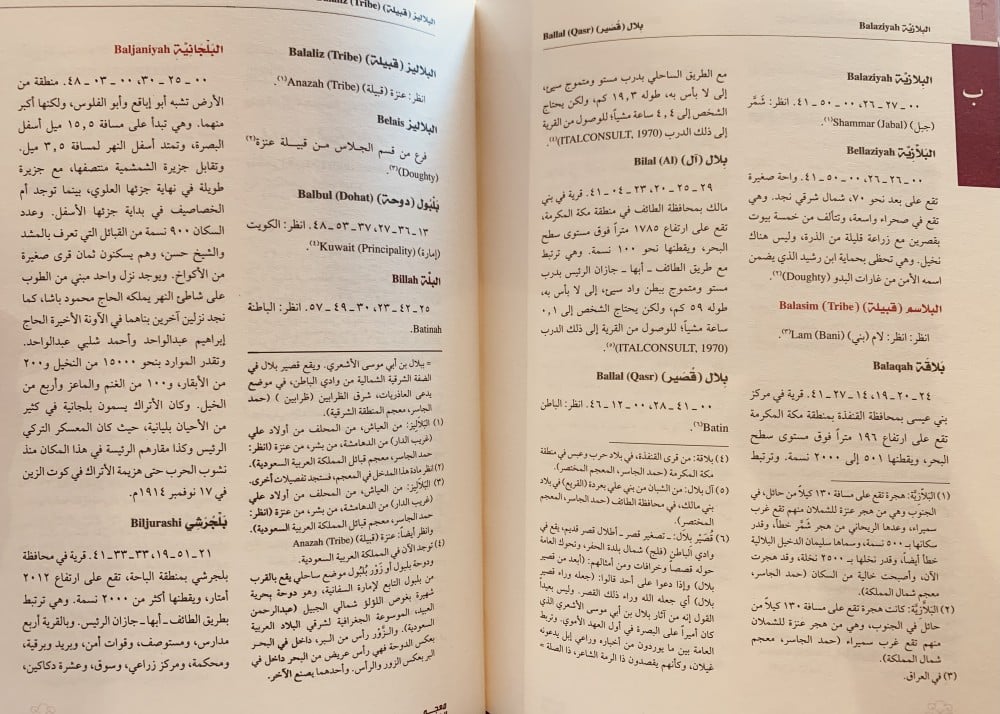 البلازيّة Balaziyah
بلال (قُصَير) Ballal (Qasr)
ب
البلازيّة Balaziyah
٠٠ ـ ٢٧ ـ ٢٦، ٠٠ ـ ٥٠ ـ ٤١. انظر: شَمَّر
(جبل) Shammar (Jabal)(١).
البَلاَّزيّة Bellaziyah
٠٠ ـ ٢٦ ـ ٢٦، ٠٠ ـ ٥٠ ـ ٤١. واحة صغيرة
تقع على بعد نحو ٧٠، شمال شرقي نجد. وهي
تقع في صحراء واسعة، وتتألف من خمسة بيوت
بقصرين مع زراعة قليلة من الذرة، وليس هناك
نخيل. وهي تحظى بحماية ابن رشيد الذي يضمن
اسمه الأمن من غارات البدو (Doughty)(٢).
البلاسم (قبيلة) Balasim (Tribe)
انظر: انظر: لام (بني) Lam (Bani)(٣).
بَلاقَة Balaqah
٢٤ ـ ٢٠ ـ ١٩، ١٤ ـ ٢٧ ـ ٤١. قرية في مركز
بني عيسى بمحافظة القنفذة بمنطقة مكة المكرمة
تقع على ارتفاع ١٩٦ متراً فوق مستوى سطح
البحر، ويقطنها ٥٠١ إلى ٢٠٠٠ نسمة. وترتبط
(١) البَلاَزيَّة: هجرة تقع على مسافة ١٣٠ كيلاً من حائل، في
الجنوب وهي من هجر عنزة للشملان منهم تقع غرب
سميراء، وعدها الريحاني من هجر شَمَّر خطأً، وقدر
سكانها بـ ٥٠٠ نسمة، وسماها سليمان الدخيل البلالية
خطأ أيضاً، وقدر نخلها بـ ٢٥٠٠ نخلة، وقد هجرت
الآن، وأصبحت خالية من السكان (حمد الجاسر،
معجم شمال المملكة).
(٢) البَلاَزيَّة: كانت هجرة تقع على مسافة ١٣٠ كيلاً من
حائل في الجنوب، وهي من هجر عنزة للشملان
منهم تقع غرب سميراء (حمد الجاسر، معجم
شمال المملكة).
(٣) في العراق.
مع الطريق الساحلي بدرب مستو ومتموج سيئ،
إلى لا بأس به، طوله ١٩,٣ كم، ولكن يحتاج
الشخص إلى ٤,٤ ساعة مشياً؛ للوصول من القرية
إلى ذلك الدرب (ITALCONSULT, 1970)(٤).
بلال (آل) Bilal (Al)
٢٩ ـ ٢٥ ـ ٢٠، ٢٣ ـ ٠٤ ـ ٤١. قرية في بني
مالك بمحافظة الطائف في منطقة مكة المكرمة،
تقع على ارتفاع ١٧٨٥ متراً فوق مستوى سطح
البحر، ويقطنها نحو ١٠٠ نسمة. وهي ترتبط
مع طريق الطائف ـ أبها ـ جازان الرئيس بدرب
مستو ومتموج ببطن واد سيئ، إلى لا بأس به،
طوله ٥٩ كم، ولكن يحتاج الشخص إلى ٠,١
ساعة مشياً؛ للوصول من القرية إلى ذلك الدرب
(ITALCONSULT, 1970)(٥).
بلال (قُصَير) Ballal (Qasr)
٠٠ ـ ٤١ ـ ٢٨، ٠٠ ـ ١٢ ـ ٤٦. انظر: الباطن
Batin(٦).
(٤) بلاقة: من قرى القنفذة، في بلاد حرب وعبس في منطقة
مكة المكرمة (حمد الجاسر، المعجم المختصر).
(٥) آل بلال: من الشبان من بني علي بعردة (القريع) في بلاد
بني مالك، في محافظة الطائف (حمد الجاسر، المعجم
المختصر).
(٦) قُصَيْر بلال: ـ تصغير قصر ـ أطلال قصر قديم، يقع في
وادي الباطن (فلج) شمال بلدة الحفر، وتحوك العامة
حوله قصصاً وخرافات ومن أمثالهم: (أبعد من قصير
بلال) وإذا دعوا على أحد قالوا: (جعله وراء قصير
بلال) أي جعله الله وراء ذلك القصر. وليس بعيداً
القول إنه من آثار بلال بن أبي موسى الأشعري الذي
كان أميراً على البصرة في أول العهد الأموي. وتربط
العامة بين ما يوردون من أخباره وراعي إبل يدعونه
غيلان، وكأنهم يقصدون ذا الرمة الشاعر، ذا الصلة =
البلاليز (قبيلة) Balaliz (Tribe)
البلاليز (قبيلة) Balaliz (Tribe)
انظر: عنزة (قبيلة) Anazah (Tribe)(١).
البلاليز Belais
فرع من قسم الجلاس من قبيلة عنزة(٢)
(Doughty)(٣).
بَلْبُول (دوحة) Balbul (Dohat)
١٣ ـ ٣٦ ـ ٢٧، ٣٧ ـ ٥٣ ـ ٤٨. انظر: الكويت
(إمارة) Kuwait (Principality)(٤).
البلّة Billah
٢٥ ـ ٤٢ ـ ٢٣، ٣٠ ـ ٤٩ ـ ٥٧. انظر: الباطنة
Batinah.
= ببلال بن أبي موسى الأشعري. ويقع قصير بلال في
الضفة الشرقية الشمالية من وادي الباطن، في موضع
يدعى العاذريات، شرق الطرابين (ظرابين) (حمد
الجاسر، معجم المنطقة الشرقية).
(١) البَلاليز: من العياش، من المحلف من أولاد علي
(غريب الدار) من الدهامشة، من بشر، من عنزة (انظر:
حمد الجاسر، معجم قبائل المملكة العربية السعودية).
(٢) انظر مادة هذا المدخل في المعجم، فستجد تفصيلات أخرى.
(٣) البَلاليز: من العياش، من المحلف من أولاد علي
(غريب الدار) من الدهامشة، من بشر، من عنزة (انظر:
حمد الجاسر، معجم قبائل المملكة العربية السعودية).
وانظر أيضاً: عنزة (قبيلة) Anazah (Tribe)
(٤) توجد الآن في المملكة العربية السعودية.
ودوحة بلبول أو زَوْر بُلْبُول موضع ساحلي يقع بالقرب
من بلبول التابع لإمارة السفانية، وهو دوحة بحرية
شهيرة بغوص اللؤلؤ شمالي الجبيل (عبدالرحمن
العبيد، الموسوعة الجغرافية لشرقي البلاد العربية
السعودية). والزَّوْر رأس من البر، داخل في البحر
بعكس الدوحة فهي رأس عريض من البحر داخل في
البر بعكس الزور والرأس. وأحدهما يصنع الآخر.
معجم
البَلْجانيّة Baljaniyah
٠٠ ـ ٢٥ ـ ٣٠، ٠٠ ـ ٠٣ ـ ٤٨. منطقة من
الأرض تشبه أبو إباقع وأبو الفلوس، ولكنها أكبر
منهما. وهي تبدأ على مسافة ١٥,٥ ميل أسفل
البصرة، وتمتد أسفل النهر لمسافة ٣,٥ ميل.
وتقابل جزيرة الشمشمية منتصفها، مع جزيرة
طويلة في نهاية جزئها العلوي، بينما توجد أم
الخصاصيف في بداية جزئها الأسفل. وعدد
السكان ٩٠٠ نسمة من القبائل التي تعرف بالمشد
والشيخ حسن، وهم يسكنون ثمان قرى صغيرة
من الأكواخ. ويوجد نزل واحد مبني من الطوب
على شاطئ النهر يملكه الحاج محمود باشا، كما
نجد نزلين آخرين بناهما في الآونة الأخيرة الحاج
إبراهيم عبدالواحد وأحمد شلبي عبدالواحد.
وتقدر الموارد بنحو ١٥٠٠٠ من النخيل و٢٠٠
من الأبقار، و١٠٠ من الغنم والماعز وأربع من
الخيل. وكان الأتراك يسمون بلجانية في كثير
من الأحيان بليانية، حيث كان المعسكر التركي
الرئيس وكذا مقارهم الرئيسة في هذا المكان منذ
نشوب الحرب حتى هزيمة الأتراك في كوت الزين
في ١٧ نوفمبر ١٩١٤م.
بَلْجَرَشِي Biljurashi
٢١ ـ ٥١ ـ ١٩، ٣٣ ـ ٣٣ ـ ٤١. قرية في محافظة
بلجرشي بمنطقة الباحة، تقع على ارتفاع ٢٠١٢
أمتار، ويقطنها أكثر من ٢٠٠٠ نسمة. وهي ترتبط
بطريق الطائف ـ أبها ـ جازان الرئيس. وبالقرية أربع
مدارس، ومستوصف، وقوات أمن، وبريد وبرقية،
ومحكمة، ومركز زراعي، وسوق، وعشرة دكاكين،